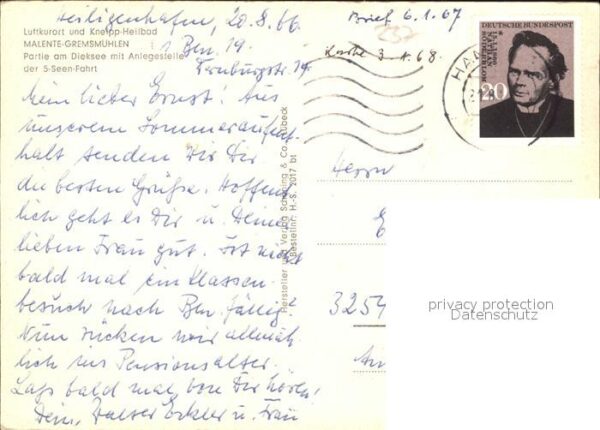 Heiligenhafen, 20.8.66
Brief 6.1.67
Luftkurort und Kneipp-Heilbad
MALENTE-GREMSMÜHLEN
Partie am Dieksee mit Anlegestelle
der 5-Seen-Fahrt
1 Bln. 19.
Karte 3. 1. 68.
237
Mein lieber Ernst! Aus
unserem Sommeraufent-
halt senden Dir
die besten Grüße. Hoffent-
lich geht es Dir u. Deiner
lieben Frau gut. Ist nicht
bald mal ein Klassen-
besuch nach Bln. fällig?
Nun rücken wir allmäh-
lich ins Pensionsalter.
Lass bald mal von Dir hören!
Dein, u. Frau
Hersteller und Verlag Schöning & Co., Lübeck
Bestellnr. H.-S. 2017 bt
DEUTSCHE BUNDESPOST
NATHAN
SÖDERBLOM
20
HA
Herrn
E
3254
An
privacy protection
Datenschutz